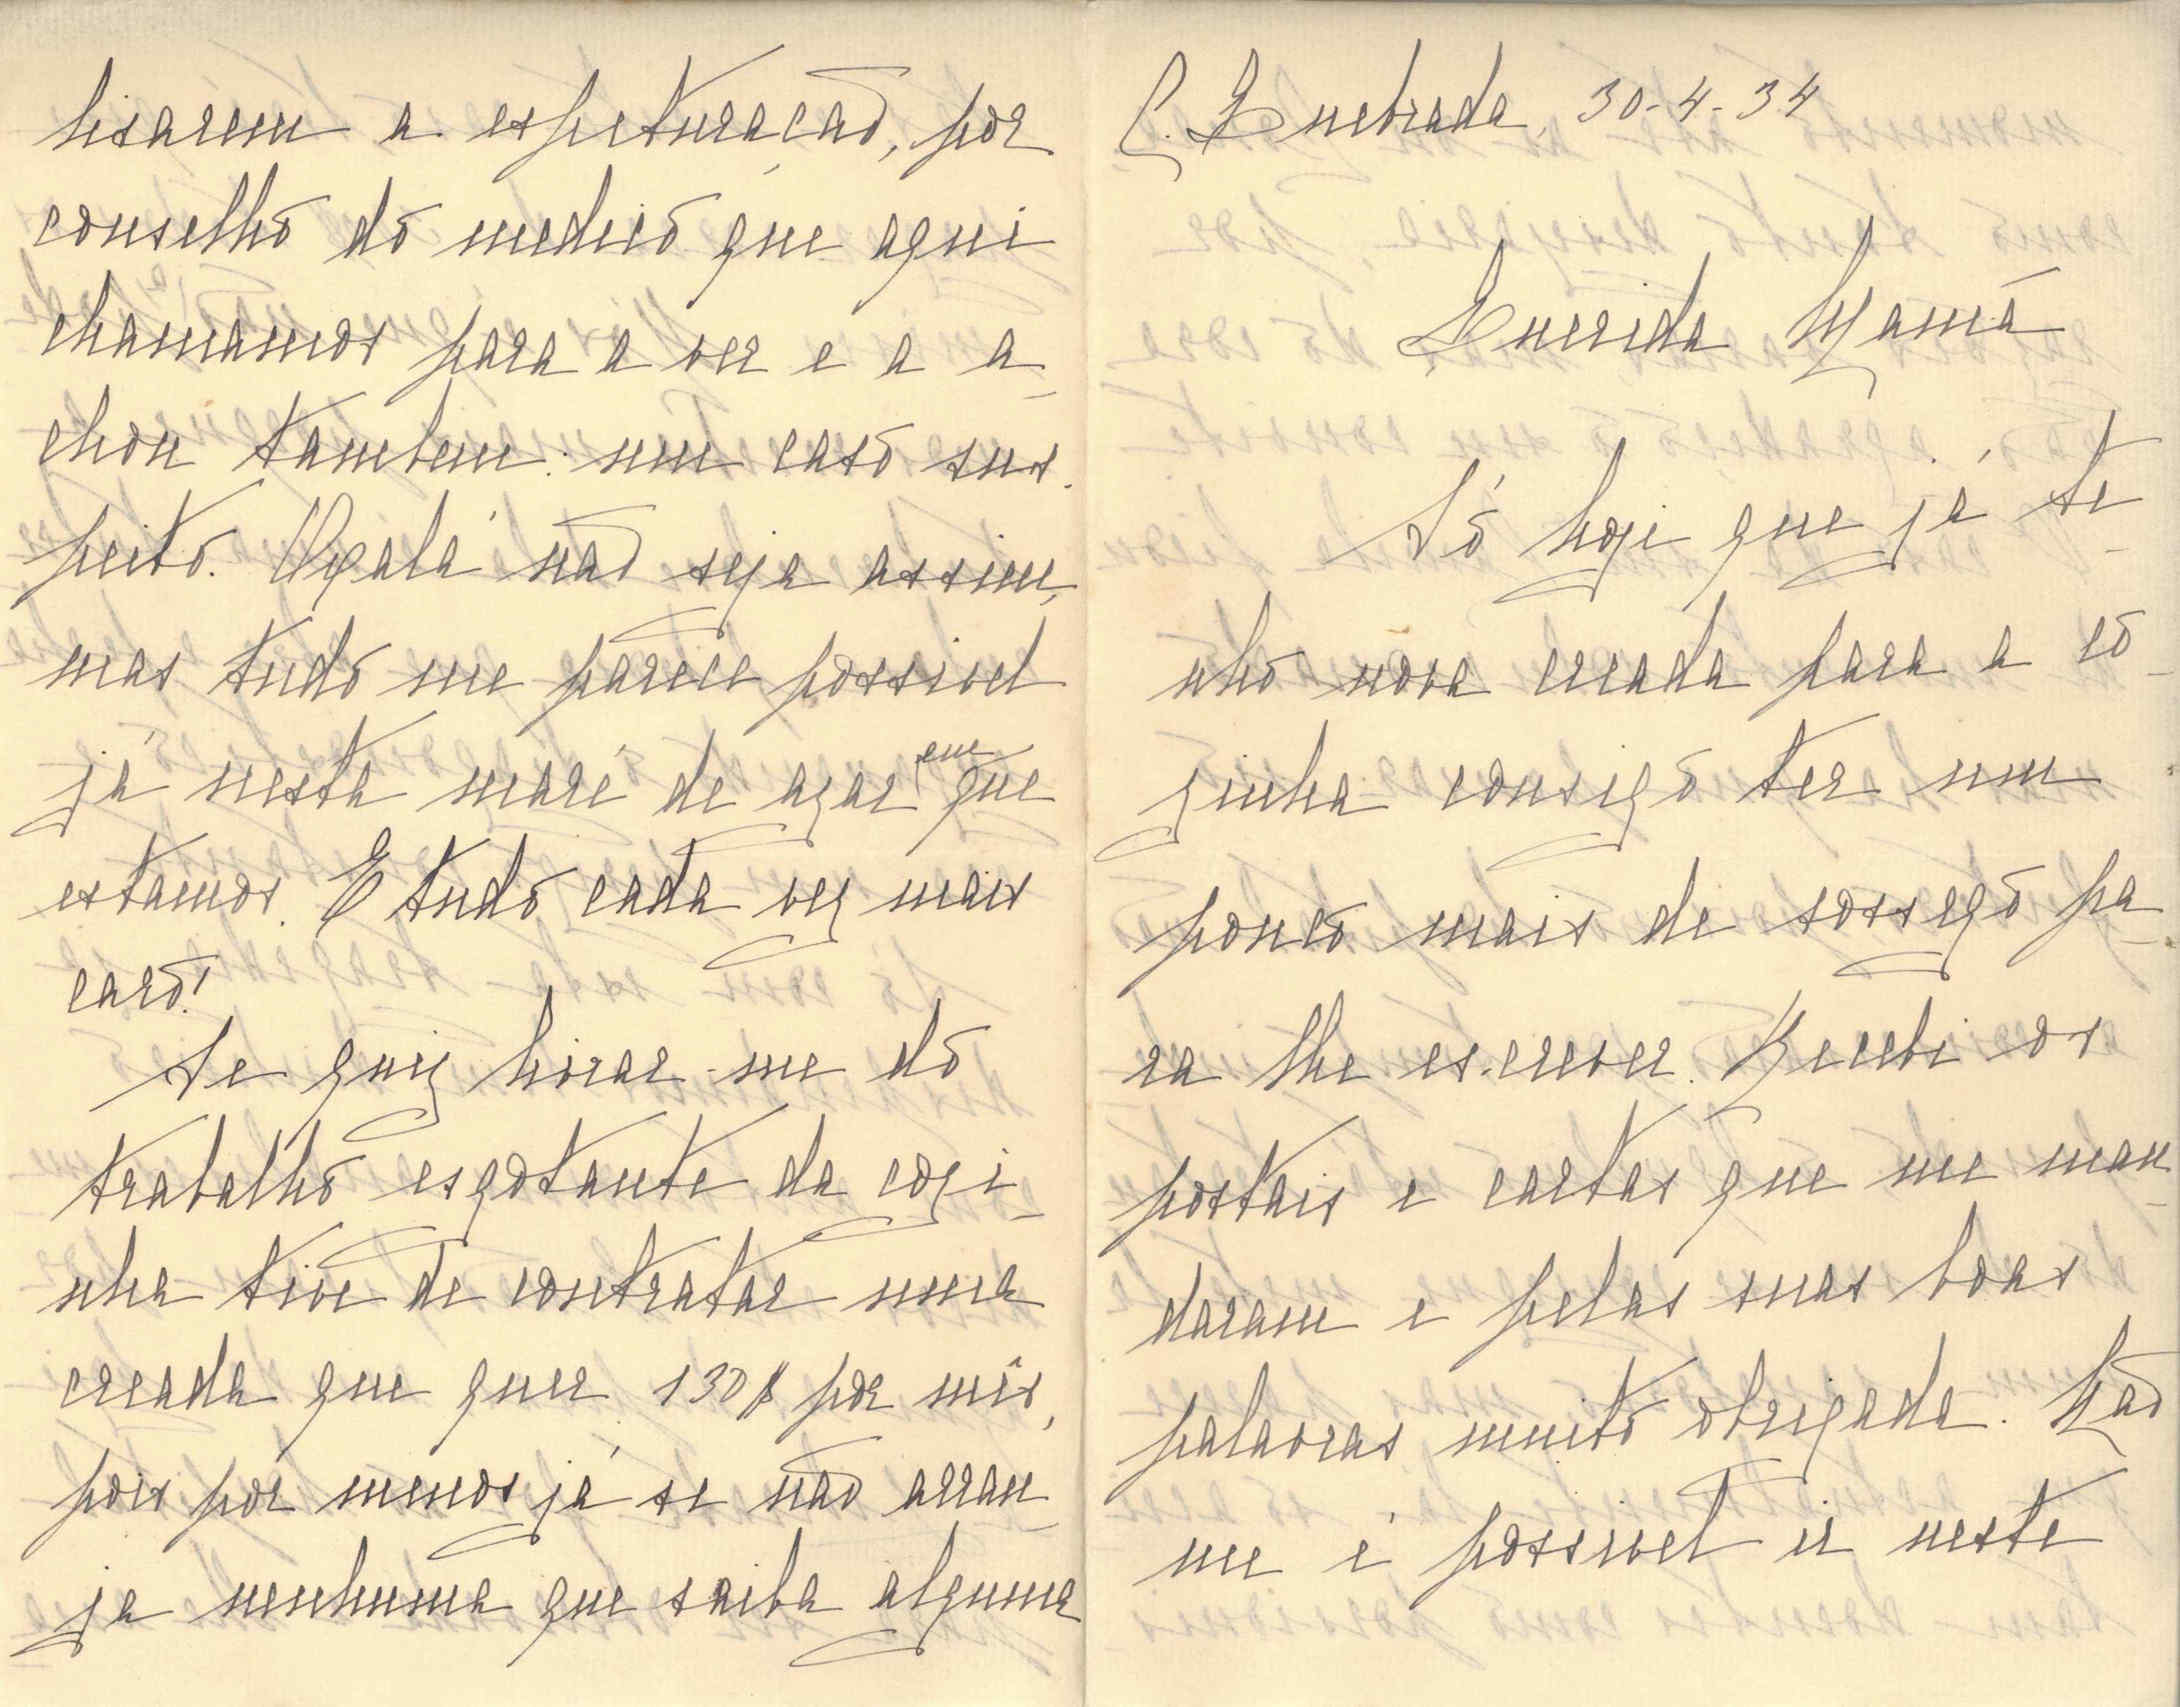 C. Quebrada, 30-4-34
Querida Mamã
Só hoje que já te-
nho nova creada para a co-
zinha consigo ter um
pouco mais de sossego pa-
ra lhe escrever. Recebi os
postais e cartas que me man-
daram e pelas suas boas
palavras muito obrigada. Não
me é possivel ir neste
lisarem a espeturação, por
conselho do medico que aqui
chamamos para a ver e a a-
chou tambem um caso sus-
peito. Oxalá não seja assim,
mas tudo me parece possivel
já nesta maré de azar em que
estamos. E tudo cada vez mais
caro!
Se quiz livrar-me do
trabalho esgotante da cozi-
nha tive de contratar uma
creada que quer 130$ por mês,
pois por menos já se não arran-
ja nenhuma que saiba alguma